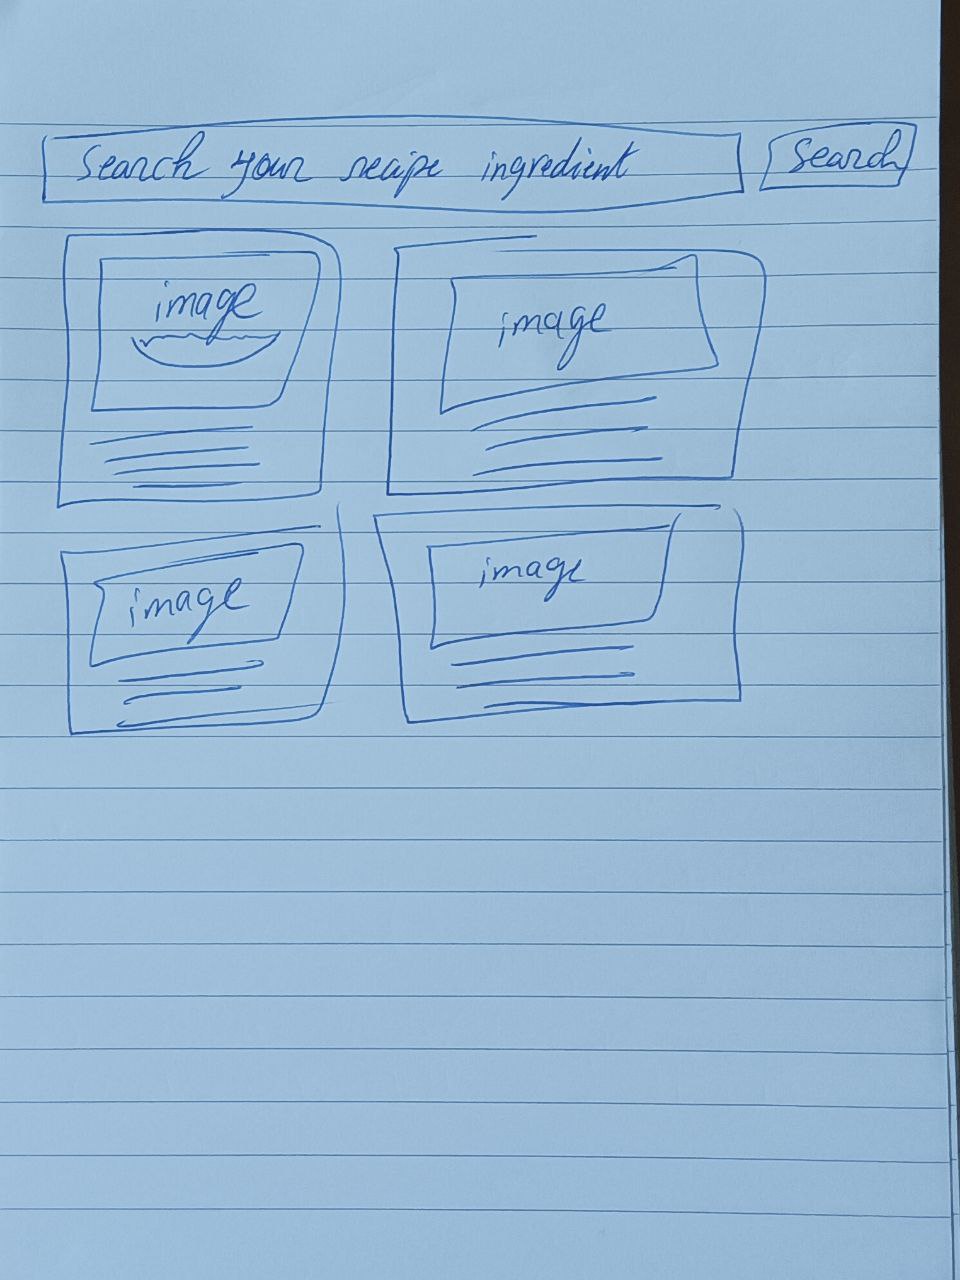 Search your recipe ingredient
Search
image
image
image
image